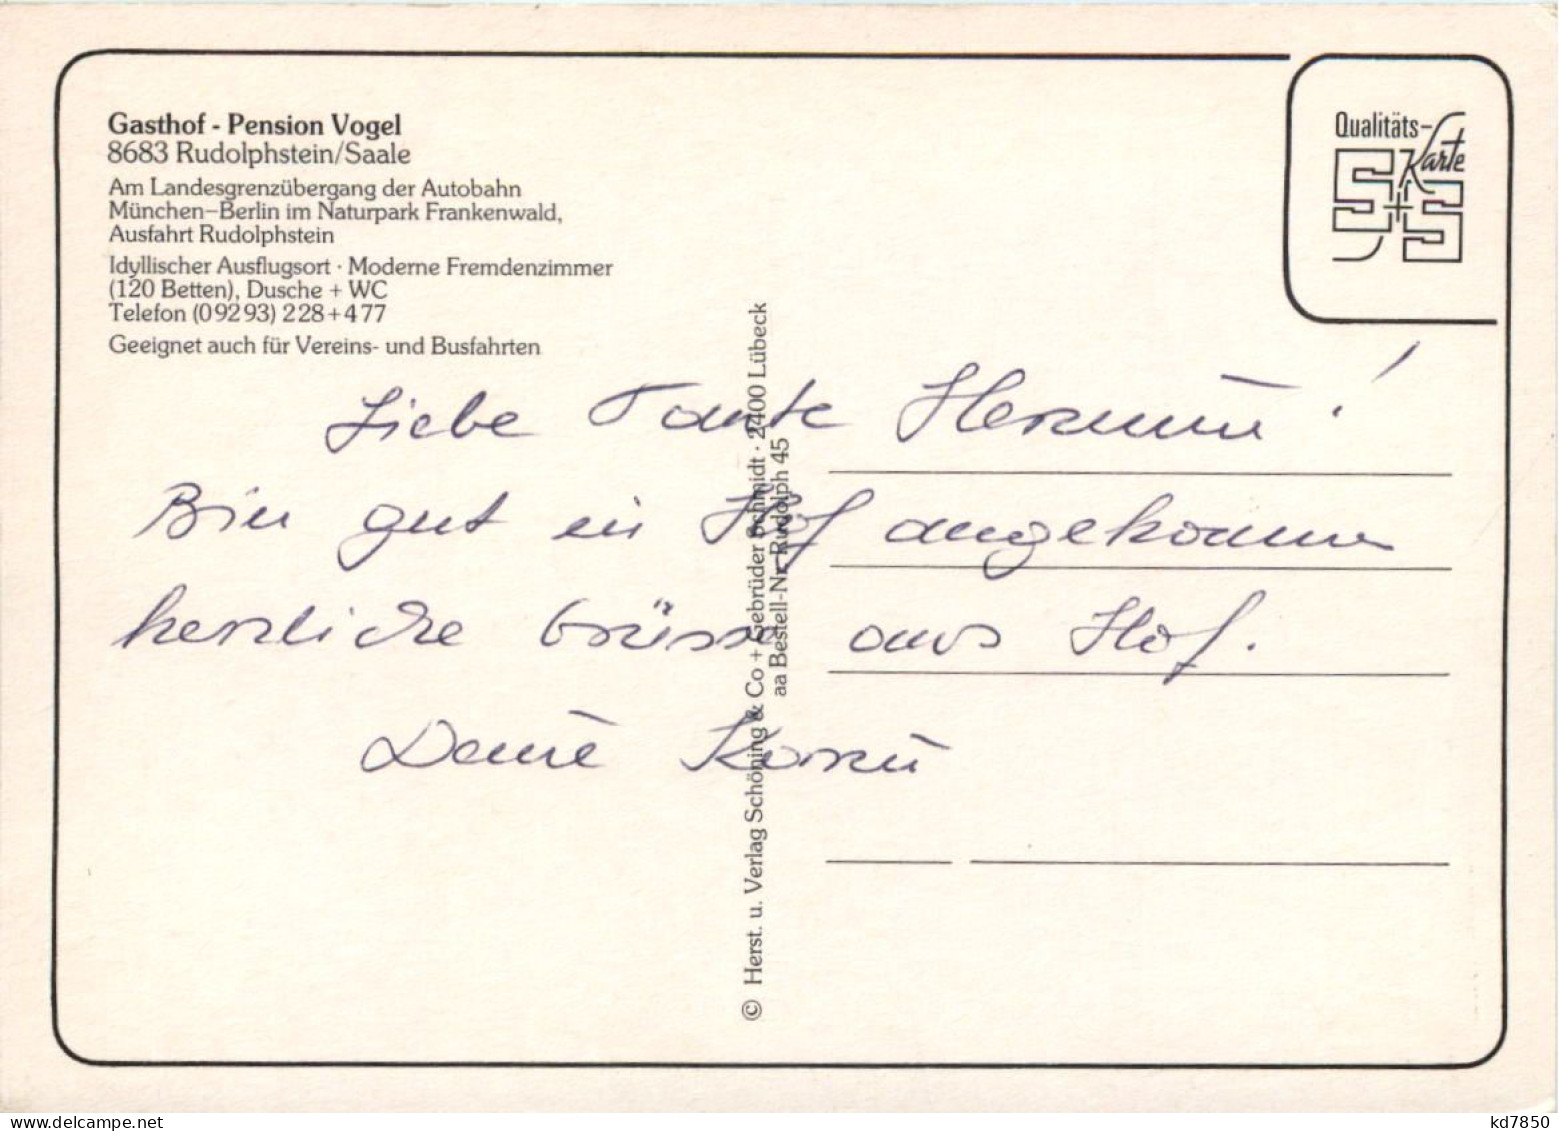 Gasthof - Pension Vogel
8683 Rudolphstein/Saale
Am Landesgrenzübergang der Autobahn
München–Berlin im Naturpark Frankenwald,
Ausfahrt Rudolphstein
Idyllischer Ausflugsort · Moderne Fremdenzimmer
(120 Betten), Dusche + WC
Telefon (09293) 228+477
Geeignet auch für Vereins- und Busfahrten
Qualitäts-
Karte
S+S
Liebe Tante Hermine!
Bin gut in Hof angekommen
herzliche Grüsse aus Hof.
Deine Karin
© Herst. u. Verlag Schöning & Co + Gebrüder Schmidt · 2400 Lübeck
aa Bestell-Nr. Rudolph 45
www.delcampe.net
kd7850